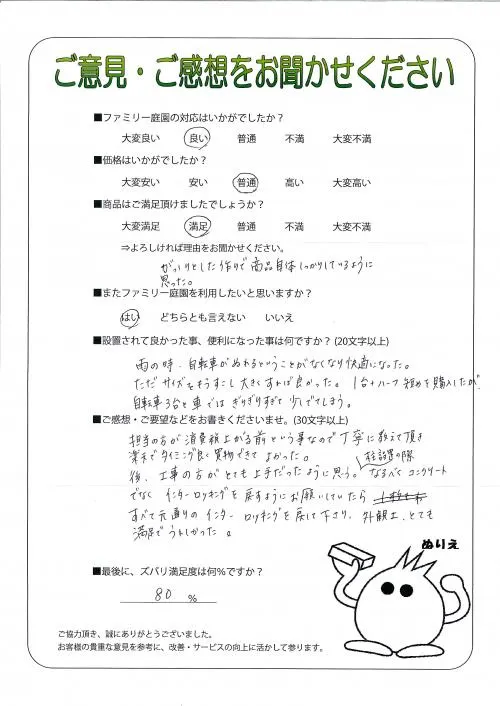 ご意見・ご感想をお聞かせください
■ファミリー庭園の対応はいかがでしたか？
大変良い 良い 普通 不満 大変不満
■価格はいかがでしたか？
大変安い 安い 普通 高い 大変高い
■商品はご満足頂けましたでしょうか？
大変満足 満足 普通 不満 大変不満
⇒よろしければ理由をお聞かせください。
がっしりとした作りで商品自体しっかりしているように
思った。
■またファミリー庭園を利用したいと思いますか？
はい どちらとも言えない いいえ
■設置されて良かった事、便利になった事は何ですか？(20文字以上)
雨の時、自転車がぬれるということがなくなり快適になった。
ただサイズをもうすこし大きくすれば良かった。 1台+ハーフ 短めを購入したが
自転車3台と車ではぎりぎりすぎて少しでてしまう。
■ご感想・ご要望などをお書きくださいませ。(30文字以上)
担当の方が消費税上がる前という事なので丁寧に教えて頂き
楽天でタイミング良く買物できてよかった。
柱設置の際
後、工事の方がとても上手だったように思う。 なるべくコンクリート
でなくインターロッキングを戻すようにお願いしていたら
すべて元通りのインターロッキングを戻して下さり、外観上、とても
満足でうれしかった。
ぬりえ
■最後に、ズバリ満足度は何％ですか？
80 ％
ご協力頂き、誠にありがとうございました。
お客様の貴重な意見を参考に、改善・サービスの向上に活かして参ります。